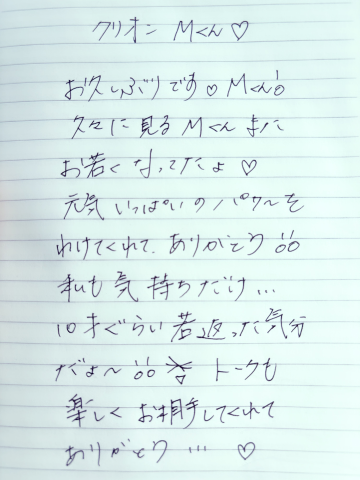 クリオン Mくん♡
お久しぶりです♡Mくん!!
久々に見るMくんまた
お若くなってたよ♡
元気いっぱいのパワーを
わけてくれて、ありがとう!!
私も気持ちだけ…
10才ぐらい若返った気分
だよ〜!! トークも
楽しくお相手してくれて
ありがとう…♡